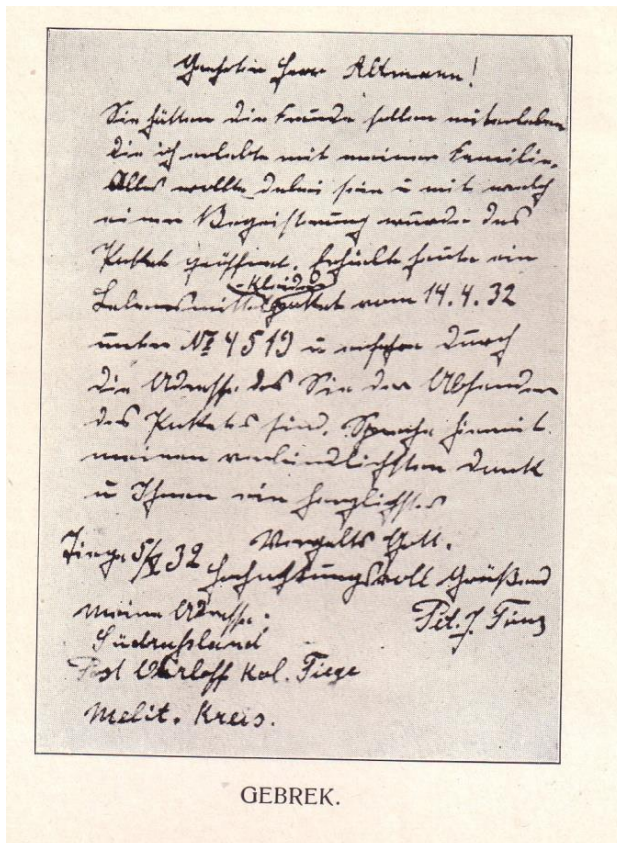 Geehrter Herr Altmann!
Sie hätten die Freude sollen miterleben
die ich erlebte mit meiner Familie.
Alles wollte dabei sein u mit welch
einer Begeisterung wurde das
Paket geöffnet. Erhielte heute ein
-Kleider
Lebensmittelpaket vom 14.4.32
unter № 4519 u ersehe durch
die Adresse das Sie der Absender
des Pakets sind. Spreche hiermit
meinen verbindlichsten Dank
u Ihnen ein herzlichstes
Vergelts Gott.
Tiege 5/V 32
Hochachtungsvoll Grüßend
Pet. J.
Meine Adresse:
Südrußland
Post Orloff Kol. Tiege
Melit. Kreis.
GEBREK.